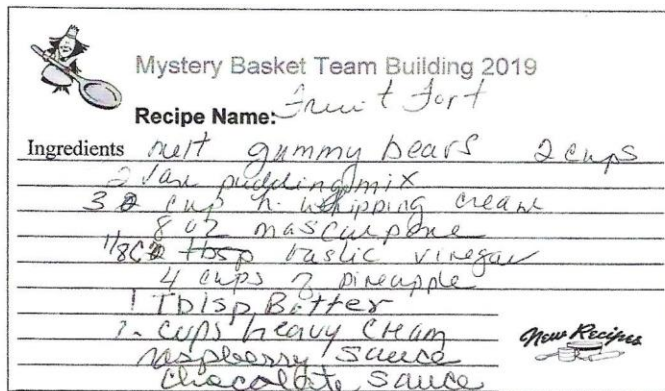 Mystery Basket Team Building 2019
Recipe Name: Fruit Tort
Ingredients melt gummy bears 2 cups
2 Van pudding mix
3 cup h. whipping cream
8 oz mascarpone
1/8C tbsp vinegar
4 cups pineapple
1 Tblsp Butter
2 cups heavy cream
New Recipes
raspberry sauce
chocolate sauce